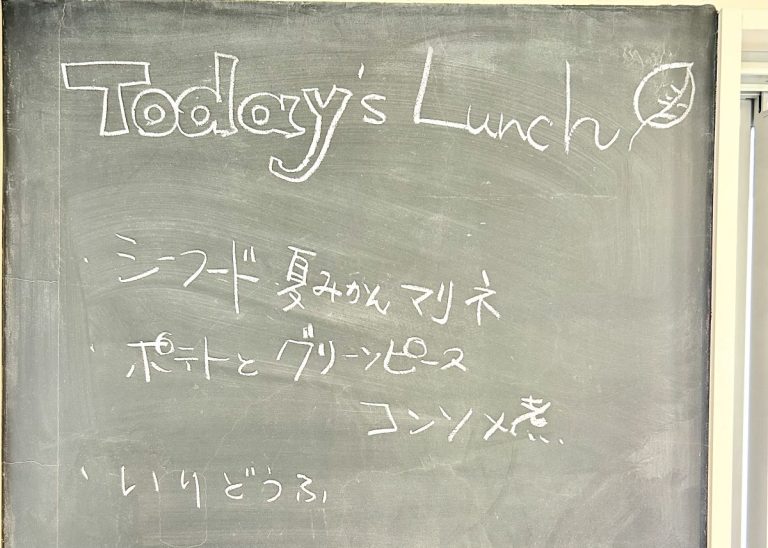 Today's Lunch
・シーフード 夏みかん マリネ
・ポテトと グリーンピース
コンソメ煮
・いりどうふ